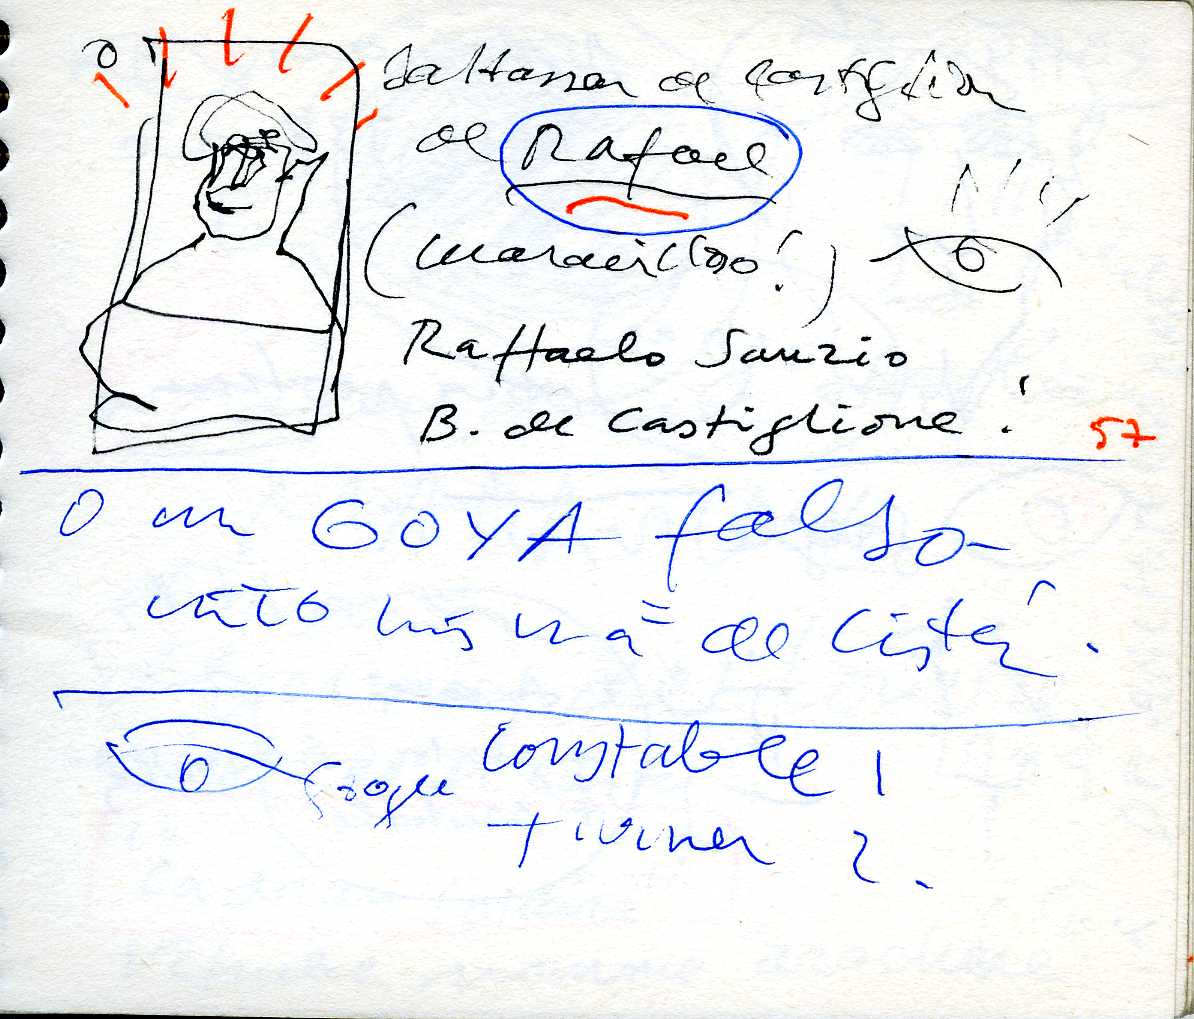 o
Baltassar de Castiglion
de Rafael
(maravilloso!)
NY
Raffaelo Sanzio
B. de Castiglione!
57
o un GOYA falso
visto de Cristal.
Constable!
turner?